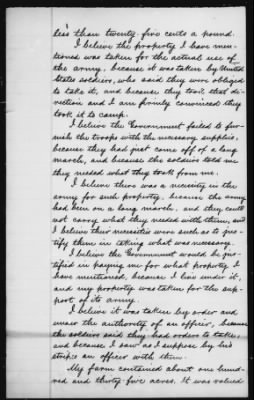 less than twenty-five cents a pound.
I believe the property I have men-
tioned was taken for the actual use of
the army, because it was taken by United
States soldiers, who said they were obliged
to take it, and because they took that di-
rection and I am firmly convinced they
took it to camp.
I believe the Government failed to fur-
nish the troops with the necessary supplies,
because they had just come off of a long
march, and because the soldiers told me
they needed what they took from me.
I believe there was a necessity in the
army for such property, because the army
had been on a long march, and they could
not carry what they needed with them, and
I believe their necessities were such as to jus-
tify them in taking what was necessary.
I believe the Government would be jus-
tified in paying me for what property I
have mentioned, because I live under it,
and my property was taken for the sup-
port of its army.
I believe it was taken by order and
under the authority of an officer, because
the soldiers said they had orders to take,
and because I saw as I suppose by his
stripes an officer with them.
My farm contained about one hund-
red and thirty-five acres. It was valued